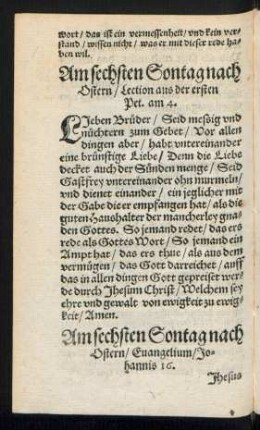 wort / das ist ein vermessenheit / vnd kein ver-
stand / wissen nicht / was er mit dieser rede ha-
ben wil.
Am sechsten Sontag nach
Ostern / Lection aus der ersten
Pet. am 4.
LIeben Brüder / Seid meßig vnd
nüchtern zum Gebet / Vor allen
dingen aber / habt vntereinander
eine brünstige Liebe / Denn die Liebe
decket auch der Sünden menge / Seid
Gastfrey vntereinander ohn murmeln /
vnd dienet einander / ein jeglicher mit
der Gabe die er empfangen hat / als die
guten Haushalter der mancherley gna-
den Gottes. So jemand redet / das ers
rede als Gottes Wort / So jemand ein
Ampt hat / das ers thue / als aus dem
vermügen / das Gott darreichet / auff
das in allen dingen Gott gepreiset wer-
de durch Jhesum Christ / Welchem sey
ehre vnd gewalt von ewigkeit zu ewig-
keit / Amen.
Am sechsten Sontag nach
Ostern / Euangelium / Jo-
hannis 16.
Jhesus